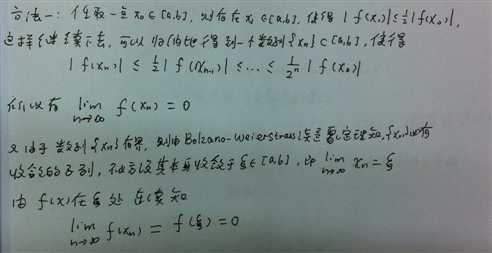 方法一: 任取一点 x₀ ∈ [a,b], 则存在 x₁ ∈ [a,b], 使得 |f(x₁)| ≤ ½|f(x₀)|,
这样继续下去, 可以归纳地得到一个数列{xₙ} ⊂ [a,b], 使得
|f(xₙ)| ≤ ½|f(xₙ₋₁)| ≤ … ≤ 1/2ⁿ |f(x₀)|
所以有 lim_{n→∞} f(xₙ) = 0
又由于数列{xₙ}有界, 则由Bolzano-Weierstrass定理知, {xₙ}必有
收敛的子列, 不妨设其本身收敛于 ξ ∈ [a,b], 即 lim_{n→∞} xₙ = ξ
由 f(x) 在 ξ 处连续知
lim_{n→∞} f(xₙ) = f(ξ) = 0